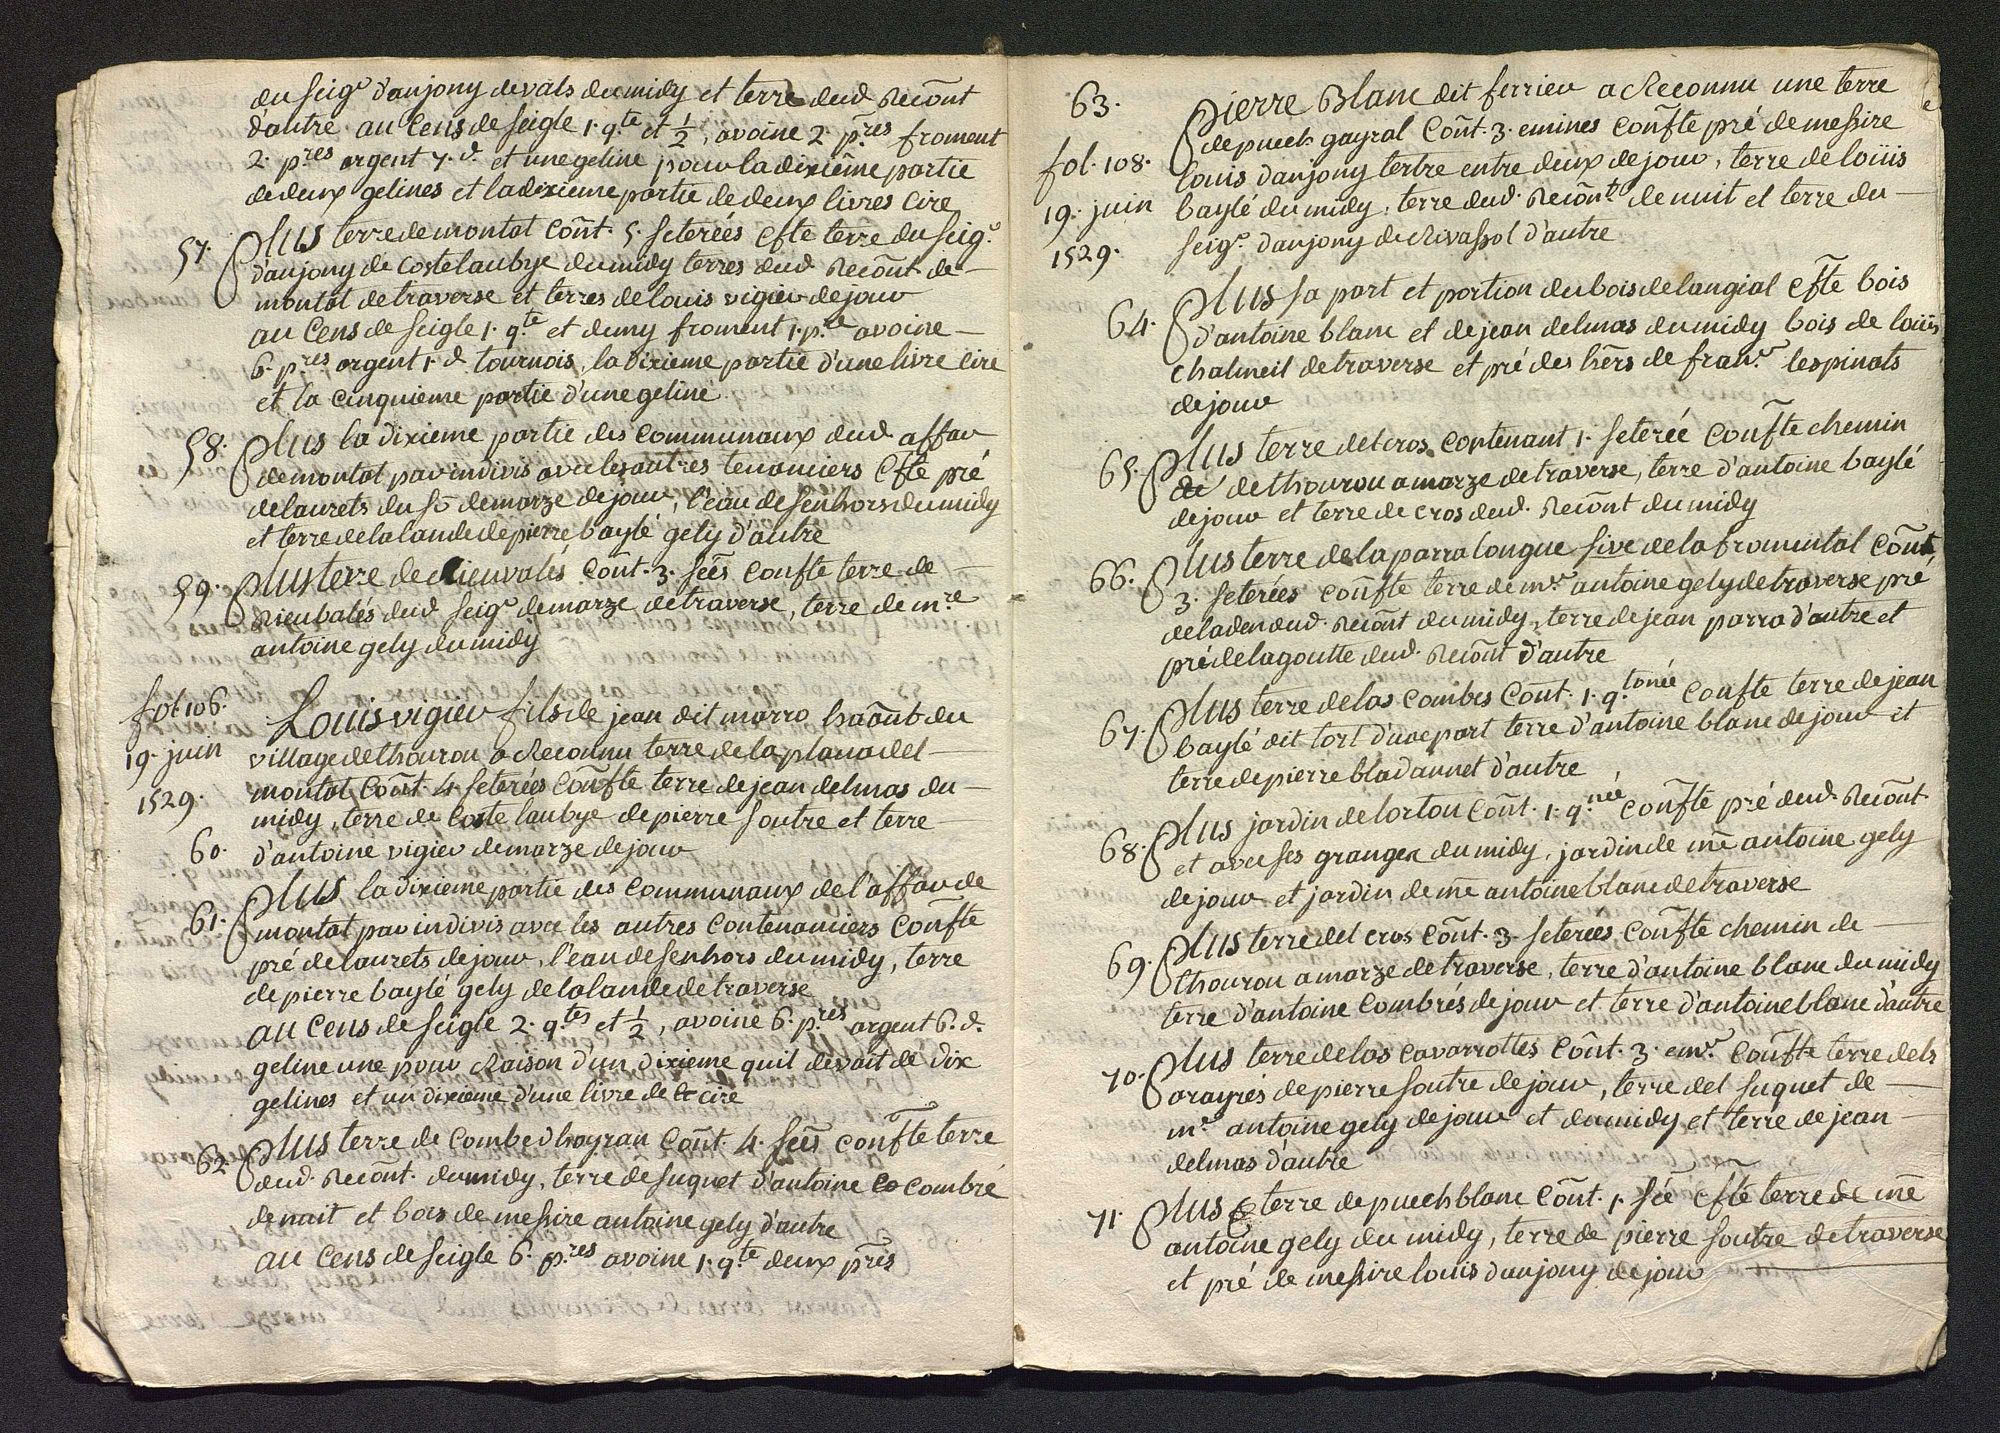 du seigr d'anjony de vals du midy et terre dud recont
d'autre au cens de seigle 1. qte et ½, avoine 2. pres froment
2. pres argent 7. d. et une geline pour la dixiême partie
de deux gelines et la dixieme partie de deux livres cire
57. Plus terre de montat cont. 5. seterées cfte terre du seigr
d'anjony de coste laubye du midy terres dud reconr. de
montat de traverse et terres de louis vigier de jour
au cens de seigle 1. qte et demy froment 1. pre avoine
6. pres argent 1. d tournois, la dixieme partie d'une livre cire
et la cinquieme partie d'une geline
58. Plus la dixieme partie des communaux dud affar
de montat par indivis avec les autres tenanciers cfte pré
de laurets du sr de marze de jour, l'eau de senhors du midy
et terre de la lande de pierre baylé gely d'autre
59. Plus terre de Rieuvalés cont. 3. sées confte terre de
Rieubalés dud seigr de marze de traverse, terre de mre
antoine gely du midy
fol 106. Louis vigier fils de jean dit marro haânt du
19. juin village de thourou a Reconnu terre de la plana del
1529. montat cont. 4. seterées confte terre de jean delmas du
midy, terre de coste laubye de pierre soutre et terre
60. d'antoine vigier de marze de jour
61. Plus la dixieme partie des communaux de l'affar de
montat par indivis avec les autres contenanciers confte
pré de laurets de jour, l'eau de senhors du midy, terre
de pierre baylé gely de la lande de traverse
au cens de seigle 2. qtes et ½, avoine 6. pres argent 6. d.
geline une pour Raison d'un dixieme quil devait de dix
gelines et un dixieme d'une livre de cire
62. Plus terre de combe chayran cont. 4. sées confte terre
dud. reconr. du midy, terre de suquet d'antoine co combré
de nuit et bois de messire antoine gely d'autre
au cens de seigle 6. pres avoine 1. qte deux prés
63. Pierre Blanc dit ferrieu a Reconnu une terre
de puech gayral cont. 3. emines confte pré de messire
fol. 108. louis d'anjony tertre entre deux de jour, terre de louis
19. juin baylé du midy, terre dud. Reconr de nuit et terre du
1529. seigr. d'anjony de Rivassol d'autre
64. Plus sa part et portion du bois de langial cfte bois
d'antoine blanc et de jean delmas du midy bois de louis
chalmeil de traverse et pré des hers de franc. lespinats
de jour
65. Plus terre del cros contenant 1. seterée confte chemin
de de thourou a marze de traverse, terre d'antoine baylé
de jour et terre de cros dud. Reconr du midy
66. Plus terre de la parra longue sive de la fromental cont
3. seterées confte terre de mre antoine gely de traverse pré
de laden dud. reconr du midy, terre de jean parra d'autre et
pré de lagoutte dud. Reconr d'autre
67. Plus terre de las combes cont. 1. qtonée confte terre de jean
baylé dit tort d'une part terre d'antoine blanc de jour et
terre de pierre bladannet d'autre
68. Plus jardin de lortou cont. 1. qnée confte pré dud. Reconr.
et avec ses granges du midy, jardin de me antoine gely
de jour et jardin de me antoine blanc de traverse
69. Plus terre del cros cont. 3. seterées confte chemin de
thourou a marze de traverse, terre d'antoine blanc du midy
terre d'antoine combrés de jour et terre d'antoine blanc d'autre
70. Plus terre de las cavarrottes cont. 3. emr. confte terre dels
arayrés de pierre soutre de jour, terre del suquet de
mr antoine gely de jour et du midy et terre de jean
delmas d'autre
71. Plus terre de puech blanc cont. 1. sée cfte terre de me
antoine gely du midy, terre de pierre soutre de traverse
et pré de messire louis d'anjony de jour